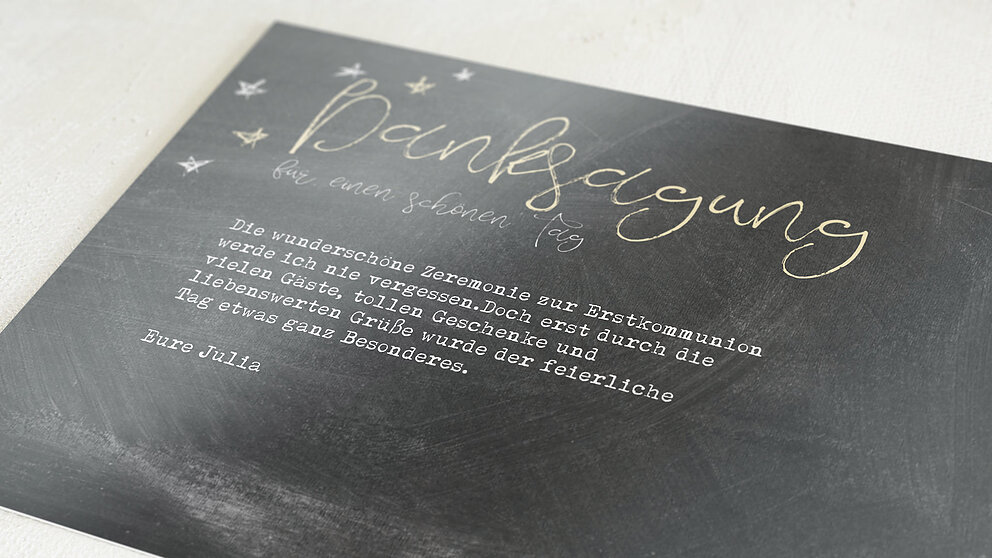 Danksagung
für einen schönen Tag
Die wunderschöne Zeremonie zur Erstkommunion
werde ich nie vergessen.Doch erst durch die
vielen Gäste, tollen Geschenke und
liebenswerten Grüße wurde der feierliche
Tag etwas ganz Besonderes.
Eure Julia